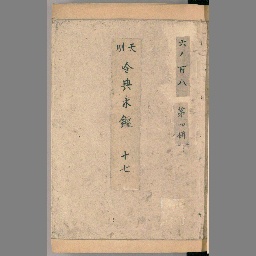 六ノ百八
第四冊
天明
令典永鑑
十七